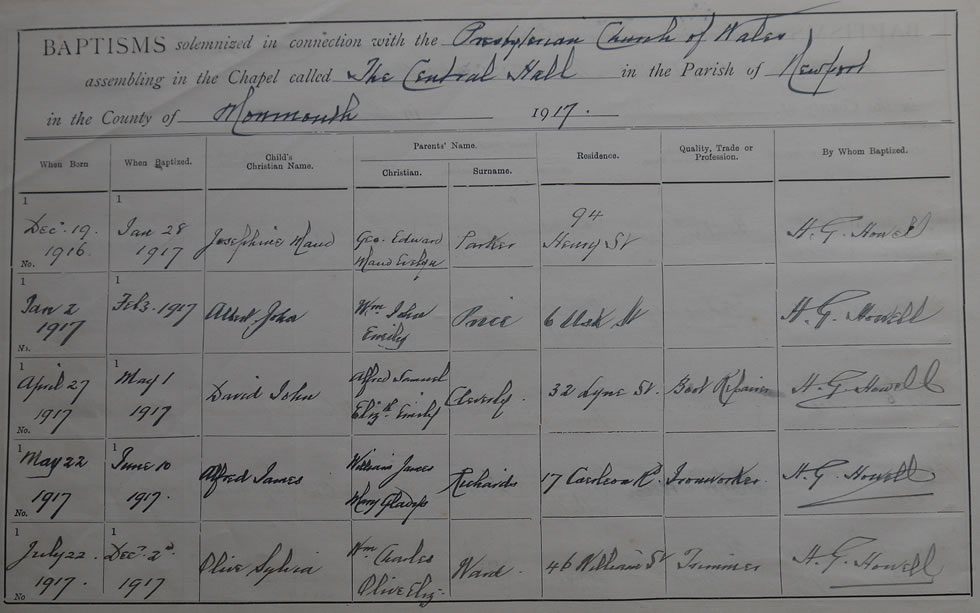 BAPTISMS solemnized in connection with the Presbyterian Church of Wales
assembling in the Chapel called The Central Hall in the Parish of Newport
in the County of Monmouth 1917.
When Born
When Baptized.
Child's Christian Name.
Parents' Name.
Christian.
Surname.
Residence.
Quality, Trade or Profession.
By Whom Baptized.
1 Dec. 19. 1916. No.
1 Jan 28 1917
Josephine Maud
Geo. Edward
Maud Evelyn
Parker
94 Henry St
H. G. Howell
1 Jan 2 1917 No.
1 Feb 3. 1917
Albert John
Wm John
Emily
Price
6 Usk St
H. G. Howell
1 April 27 1917 No.
1 May 1 1917
David John
Alfred Samuel
Elizth Emily
Cleverly.
32 Lyne St.
Boot Repairer
H. G. Howell
1 May 22 1917 No.
1 June 10 1917.
Alfred James
William James
Mary Gladys
Richards
17 Caerleon R.
Ironworker.
H. G. Howell
1 July 22. 1917. No
1 Dec. 2nd. 1917
Olive Sylvia
Wm Charles
Olive Eliz.
Ward.
46 William St
Trimmer
H. G. Howell